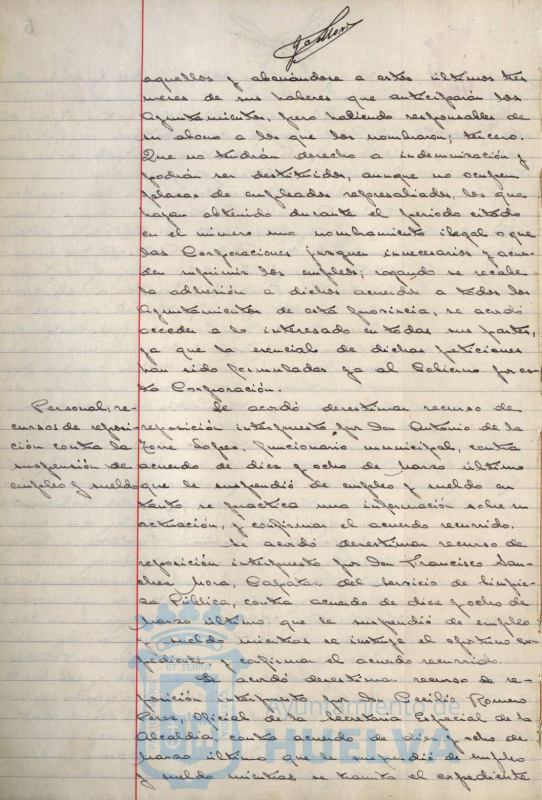 aquellos y abonándose a estos últimos tres
meses de sus haberes que anticiparán los
Ayuntamientos, pero haciendo responsables de
su abono a los que los nombraron; tercero.
Que no tendrán derecho a indemnización y
podrán ser destituidos, aunque no ocupen
plazas de empleados represaliados, los que
hayan obtenido durante el periodo citado
en el número uno nombramiento ilegal o que
las Corporaciones juzguen innecesarios y acuer-
den suprimir los empleos; rogando se recabe
la adhesión a dichos acuerdos a todos los
Ayuntamientos de esta provincia, se acordó
acceder a lo interesado en todas sus partes,
ya que la esencial de dichas peticiones
han sido formuladas ya al Gobierno por es-
ta Corporación.
Personal; re-
cursos de reposi-
ción contra la
suspensión de
empleo y sueldo
Se acordó desestimar recurso de
reposición interpuesto por don Antonio de la
Torre López, funcionario municipal, contra
acuerdo de diez y ocho de Marzo último
que le suspendió de empleo y sueldo en
tanto se practica una información sobre su
actuación, y confirmar el acuerdo recurrido.
Se acordó desestimar recurso de
reposición interpuesto por don Francisco Sán-
chez Mora, Capataz del servicio de limpie-
za Pública, contra acuerdo de diez y ocho de
Marzo último que le suspendió de empleo
y sueldo mientras se instruye el oportuno ex-
pediente y confirmar el acuerdo recurrido.
Se acordó desestimar recurso de re-
posición interpuesto por don Romero
Pérez, Oficial de la Secretaría Especial de la
Alcaldía contra acuerdo de diez y ocho de
Marzo último que le suspendió de empleo
y sueldo mientras se tramita el expediente
Ayuntamiento de
HUELVA